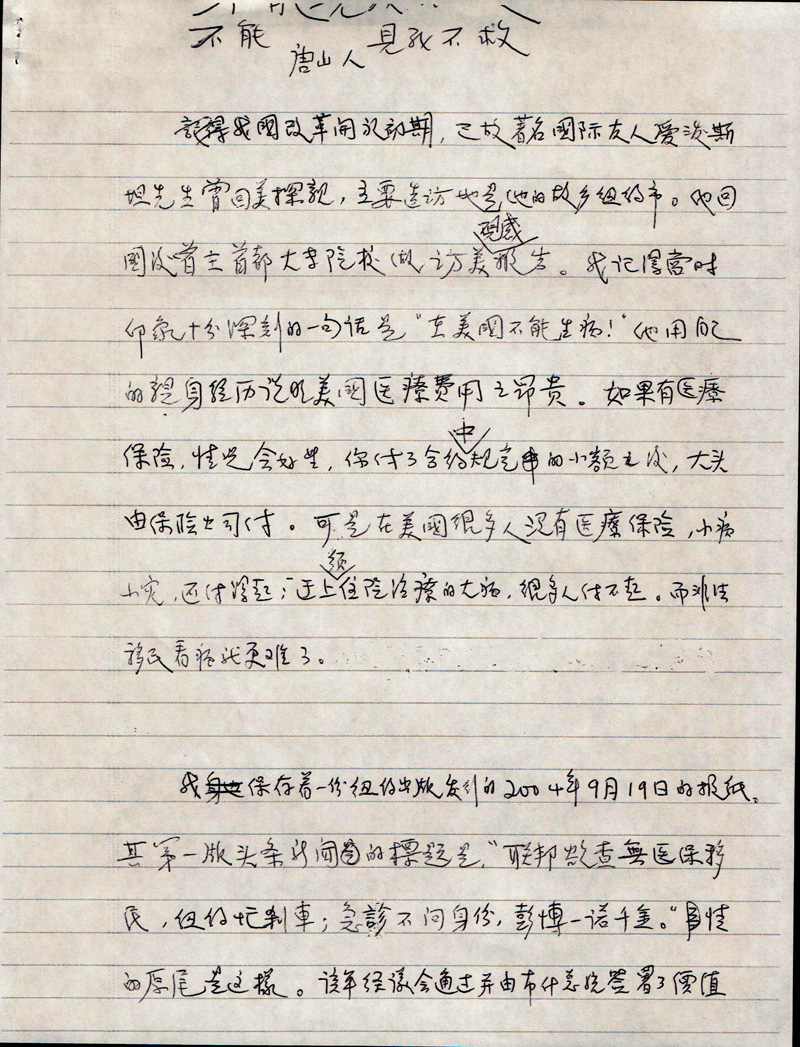 不能 見死不救
唐山人
記得我國改革開放初期，已故著名國际友人爱泼斯
坦先生曾回美探親，主要造访也是他的故乡纽约市。他回
國後曾在首都大学院校做访美观感报告。我记得當时
印象十分深刻的一句话是“在美國不能生病！”他用自己
的親身经历说明美國医療费用之昂贵。如果有医療
保险，情况会好些，你付了合约规定中的小额之後，大头
由保险公司付。可是在美國很多人没有医療保险，小病
小灾，还付得起；遇上须住院治療的大病，很多人付不起。而非法
移民看病就更难了。
我保存着一份纽约出版发行的2004年9月19日的报纸。
其第一版头条新闻的標题是，“联邦欲查無医保移
民，纽约忙刹車；急診不问身份，彭博一诺千金。”事情
的原尾是这樣。该年经议会通过并由布什总统签署了價值